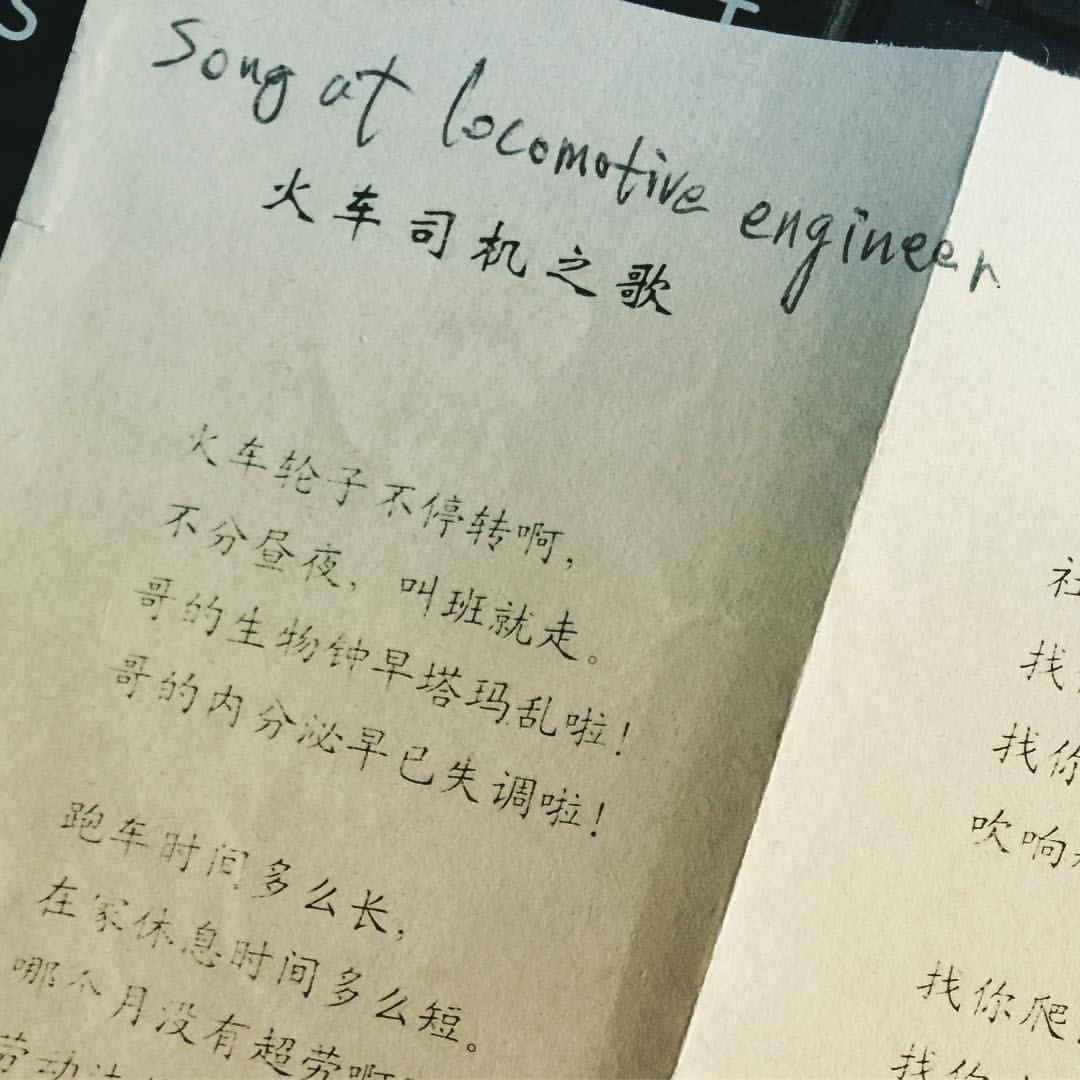 Song at locomotive engineer
火车司机之歌
火车轮子不停转啊,
不分昼夜, 叫班就走。
哥的生物钟早塔玛乱啦!
哥的内分泌早已失调啦!
跑车时间多么长,
在家休息时间多么短。
哪个月没有超劳啊
劳动法
社
找
找你
吹响
找你爬
找你